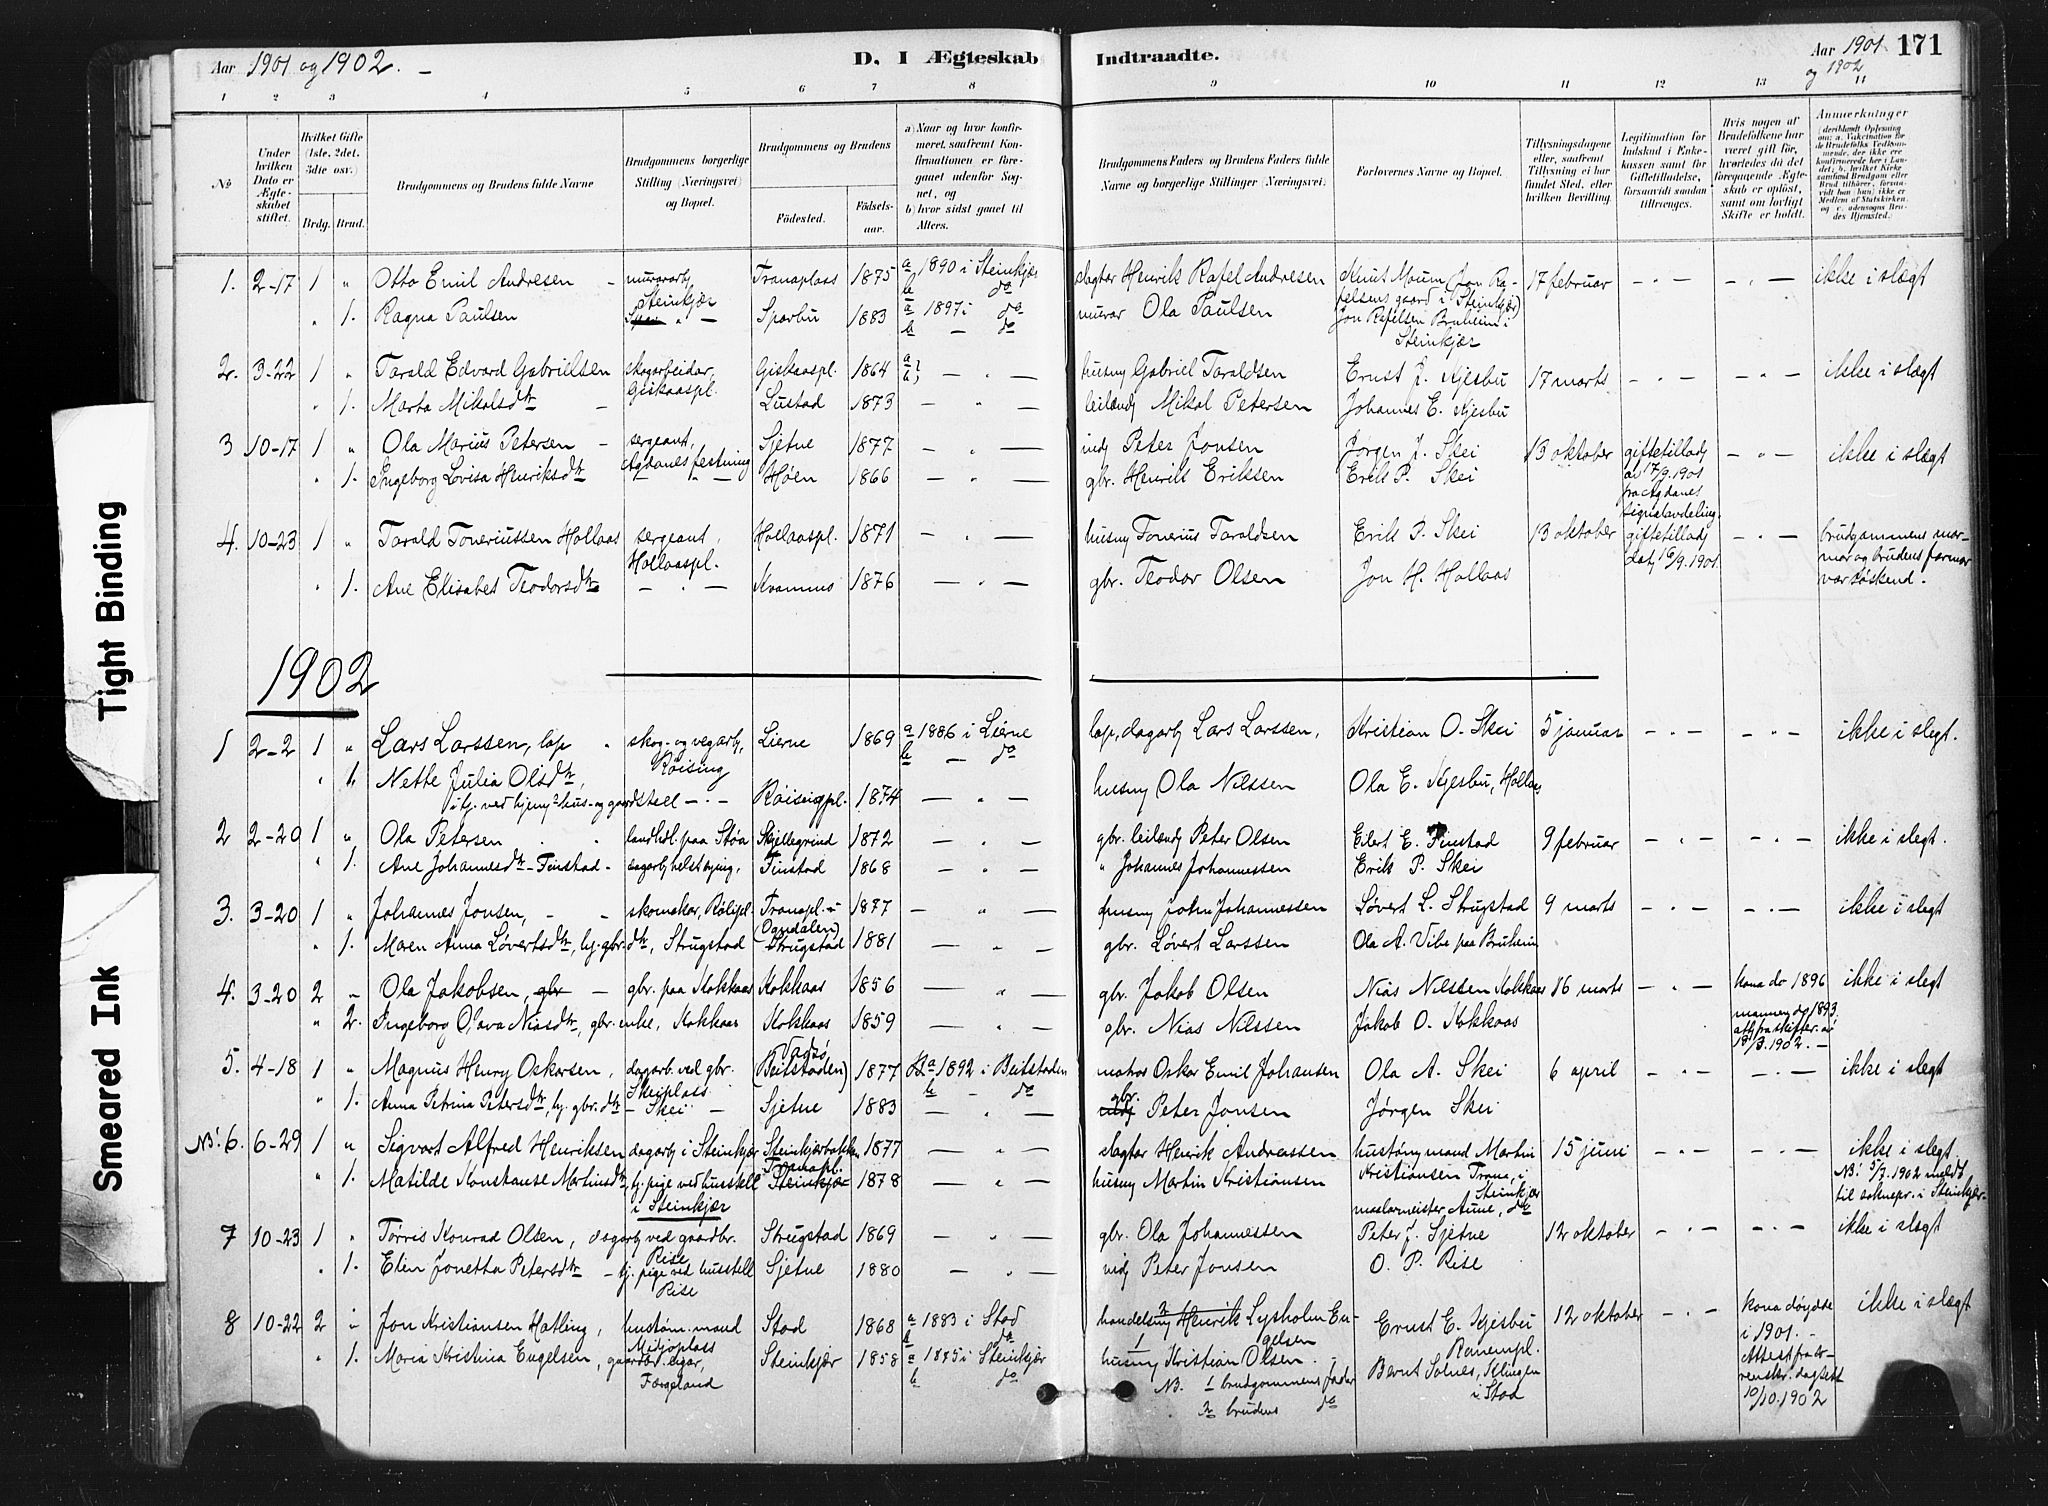 Aar 1901 og 1902. D. I Ægteskab Indtraadte. Aar 1901 og 1902 171
1 2 3 4 5 6 7 8 9 10 11 12 13 11
№
Under hvilken Dato er Ægteskabet stiftet.
Hvilket Gifte (1ste, 2det, 3die osv.)
Brdg. Brud.
Brudgommens og Brudens fulde Navne
Brudgommens borgerlige Stilling (Næringsvei) og Bopæl.
Brudgommens og Brudens
Fødested. Fødselsaar.
a) Naar og hvor konfirmeret, saafremt Konfirmationen er foregaaet udenfor Sognet, og
b) hvor sidst gaaet til Alters.
Brudgommens Faders og Brudens Faders fulde Navne og borgerlige Stillinger (Næringsvei)
Forlovernes Navne og Bopæl.
Tillysningsdagene eller, saafremt Tillysning ei har fundet Sted, efter hvilken Bevilling.
Legitimation for Indskud i Enkekassen samt for Giftetilladelse, forsaavidt saadan tiltrænges.
Hvis nogen af Brudefolkene har været gift før, hvorledes da det foregaaende Ægteskab er opløst, samt om lovligt Skifte er holdt.
Anmerkninger
1. 2-17 1 " Otto Emil Andresen murararb. Steinkjær Tranaplass 1875 a 1890 i Steinkjær b do slagter Henrik Rafel Andresen Knut Moum (Jon Rafelsens gaard i Steinkjær) 17 februar - " - - " - ikke i slegt
" 1. Ragna Paulsen " - Sparbu 1883 a 1897 i do b - do murar Ola Paulsen Jon Rafelsen Bruheim i Steinkjær
2. 3-22 1 " Tarald Edvard Gabrielsen skogarbeidar, Giskaaspl. Giskaaspl. 1864 a b husmy Gabriel Taraldsen Ernst J. Kjesbu 17 marts - " - - " - ikke i slegt
" 1. Marta Mikalsdtr - Lustad 1873 - " - leilændg Mikal Petersen Johannes E. Kjesbu
3 10-17 1 " Ola Marius Petersen - sergeant, Agdanes festning Sjetne 1877 - " - indj Peter Jonsen Jørgen J. Skei 13 oktober giftetilladj av 17/9.1901 fra Agdanes signalavdeling. - " - ikke i slegt
" 1. Ingeborg Lovisa Henriksdtr - " - Høen 1866 - " - gbr. Henrik Eriksen Erik P. Skei
4. 10-23 1 " Tarald Toneriussen Hollaas sergeant, Hollaaspl. Hollaaspl. 1871 - " - husmy Tonerius Taraldsen Erik P. Skei 13 oktober giftetilladj datj 16/9.1901 - " - brudgommens mormor og brudens farmor var søskend.
" 1. Ane Elisabet Teodorsdtr - " - Kvammo 1876 - " - gbr. Teodor Olsen Jon H. Hollaas
1902
1 2-2 1 " Lars Larssen, lap " skog- og vegarbj, Røising Lierne 1869 a 1886 i Lierne b - do lap, dagarbj Lars Larssen, Kristian O. Skei 5 januar - " - - " - ikke i slegt.
" 1. Nette Julia Olsdtr, ved hjemj hus- og gaardstell - " - Røisingpl. 1874 - " - husmy Ola Nilssen Ola E. Kjesbu, Hollaas
2 2-20 1 " Ola Petersen landhdl. paa Støa Skjellegrind 1872 - " - gbr. leilændj Peter Olsen Edert E. Finstad 9 februar - " - - " - ikke i slegt.
" 1. Ane Johannesdtr - Finstad - Finstad 1868 - " - " Johannes Johannessen Erik P. Skei
3. 3-20 1 " Johannes Jonsen, - - skomakar, Rølipl. Tranapl. (Ogndalen) 1877 - " - husmy John Johannessen Løvert L. Strugstad 9 marts - " - - " - ikke i slegt
" 1. Maen Anna Løvertsdtr, hj. gbr. dtr, Strugstad Strugstad 1881 - " - gbr. Løvert Larssen Ola A. Vibe paa Bruheim
4. 3-20 2 " Ola Jakobsen, gbr - gbr. paa Kokkaas Kokkaas 1856 - " - gbr. Jakob Olsen Nias Nilssen Kokkaas 16 marts - " - kona do 1896 ikke i slegt
" 2. Ingeborg Olava Niasdtr, gbr. enke, Kokkaas Kokkaas 1859 - " - gbr. Nias Nilssen Jakob O. Kokkaas mannen do 1893 att. fra skifter. av 19/3.1902. -
5. 4-18 1 " Magnus Henry Oskarsen, dagarbj ved gbr. Skeiplass Vadsø (Beitstaden) 1877 a 1892 i Beitstaden b - do matros Oskar Emil Johansen Ola A. Skei 6 april - " - - " - ikke i slegt
" 1. Anna Petrina Petersdtr, hj. gbr. dtr - Skei - Sjetne 1883 - " - gbr. Peter Jonsen Jørgen Skei
NB! 6. 6-29 1 " Sigvart Alfred Henriksen dagarbj i Steinkjær Steinkjærbakken 1877 - " - slagtar Henrik Andreassen hustømmand Martin Kristiansen Trana, i Steinkjær 15 juni - " - - " - ikke i slegt
" 1. Matilde Konstanse Martinsdtr, hj. pige ved husstell i Steinkjær Tranapl. Steinkjær 1878 - " - husmy Martin Kristiansen malarmeister Aune, do NB! 5/7.1902 meldt til soknepr. i Steinkjær
7 10-23 1 " Tørris Konrad Olsen, dagarbj ved gaardbr. Rise Strugstad 1869 - " - gbr. Ola Johannessen Peter J. Sjetne 12 oktober - " - - " - ikke i slegt
" 1. Elen Jonetta Petersdtr - hj. pige ved husstell Rise Sjetne 1880 - " - indj Peter Jonsen O. P. Rise
8 10-22 2 " Jon Kristiansen Hatling, hustøm. mand Midjoplass Stod 1868 a 1883 i Stod b do 2 handelsmy Henrik Lysholm Engelsen Ernst E. Kjesbu Ranempl. 12 oktober - " - kona døydde i 1901. - Attest fra lensmr. dagsett 10/10.1902 ikke i slegt
" 1. Maria Kristina Engelsen, gaardbr. eigar, Færgeland Steinkjær 1858 a 1875 i Steinkjær b do 1 husmy Kristian Olsen. - Bernt Solnes, Klingen i Stod
NB. 1 brudgommens fader
2 brudens do
Tight Binding
Smeared Ink